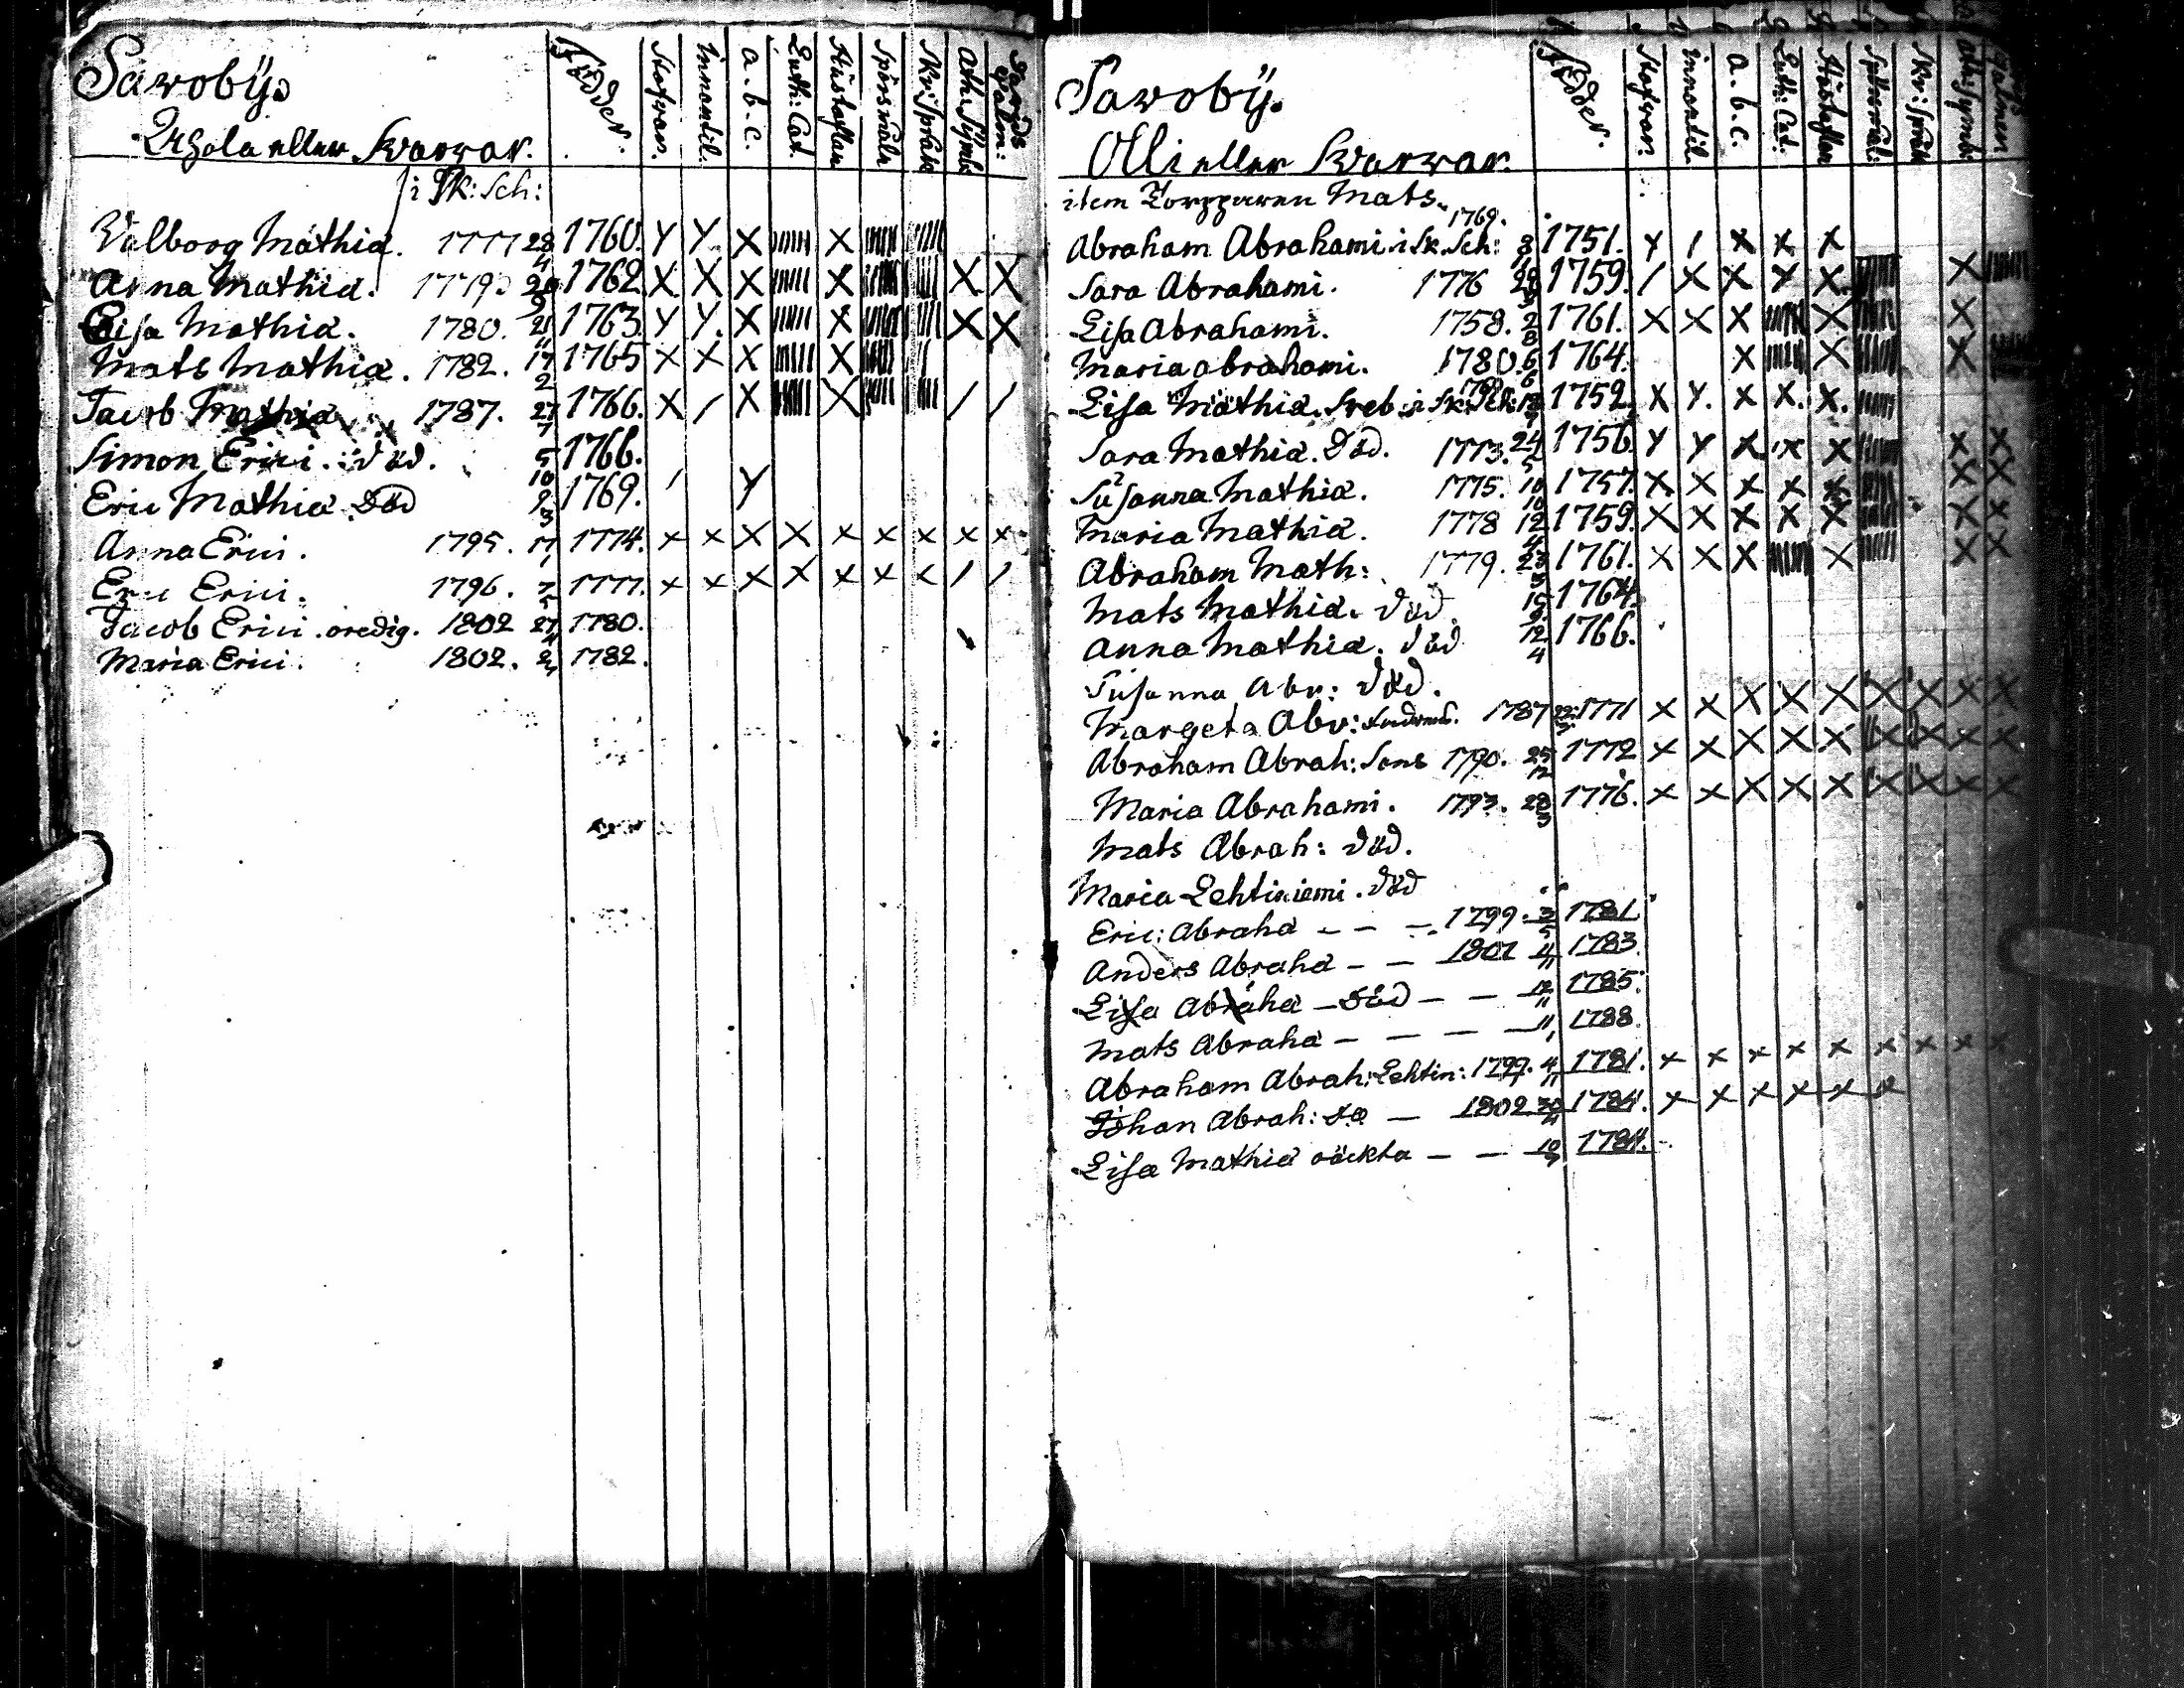 Savoby.
eller Kvarvar.
i Sk: Sch:
Födder.
Stafvar.
Innantil.
a. b. c.
Luth: Cat.
Hustaflan
Spörsmåle
Skr: Språk
Ath: Symb:
Davids Psalm:
Valborg Mathiæ. 1777 28/4 1760. Y Y X X
Anna Mathiæ. 1779. 1762 X X X X X X
Lisa Mathiæ. 1780. 21/11 1763 Y Y. X X X X
Mats Mathiæ. 1782. 17/2 1765 X X X X
Jacob Mathiæ 1787. 27/7 1766. X / X X / /
Simon Erici. död. 5/10 1766.
Eric Mathiæ Död 9/3 1769. / Y
Anna Erici. 1795. 17/1 1774. x x x x x x x x x
Eric Erici. 1796. 7/5 1777. x x x x x x x / /
Jacob Erici. oredig. 1802 27/4 1780.
Maria Erici. 1802. 1782.
Savoby.
Olli eller Kvarvar.
item Torpparen Mats.
Födder.
Stafvar.
innantil
a. b. c.
Luth: Cat:
Hustaflan
Spörsmål:
Skr: Språk
Ath: Symb:
Psalmen
1769.
Abraham Abrahami i Sk. Sch: 1751. Y / X X X
Sara Abrahami. 1776 1759. / X X Y X X
Lisa Abrahami. 1758. 2/8 1761. X X X X X
Maria Abrahami. 1780 6/6 1764. X X X
Lisa Mathiæ. i Sk: Sch: 1752. X Y. X X. X.
Sara Mathiæ. Död. 1773. 24/5 1756. Y Y X X X X X
Susanna Mathiæ. 1775. 10/10 1757. X X X X X X X
Maria Mathiæ. 1778 12/4 1759. X X X X X X X
Abraham Math: 1779. 23/3 1761. X X X X X X
Mats Mathiæ. död. 15/9 1764.
Anna Mathiæ. död 12/4 1766.
Susanna Abr: död.
Margeta Abr: 1787 1771 X X X X X X X X X
Abraham Abrah: Sons 1790. 25/12 1772 X X X X X X X X X
Maria Abrahami. 1793. 28/3 1776. X X X X X X X X X
Mats Abrah: död.
Maria Lehtiniemi. död
Eric: Abrahæ - - - 1799. 3/5 1781
Anders Abrahæ - - 1801 4/11 1783.
Lisa Abrahæ - död - - 12/11 1785.
Mats Abrahæ - - - - 11/1 1788.
Abraham Abrah: Lehtin: 1797. 4/11 1781. x x x x x x x x x
Johan Abrah: - 1802 30/4 1784. x x x x x x
Lisa Mathiæ - - 10/9 1784.